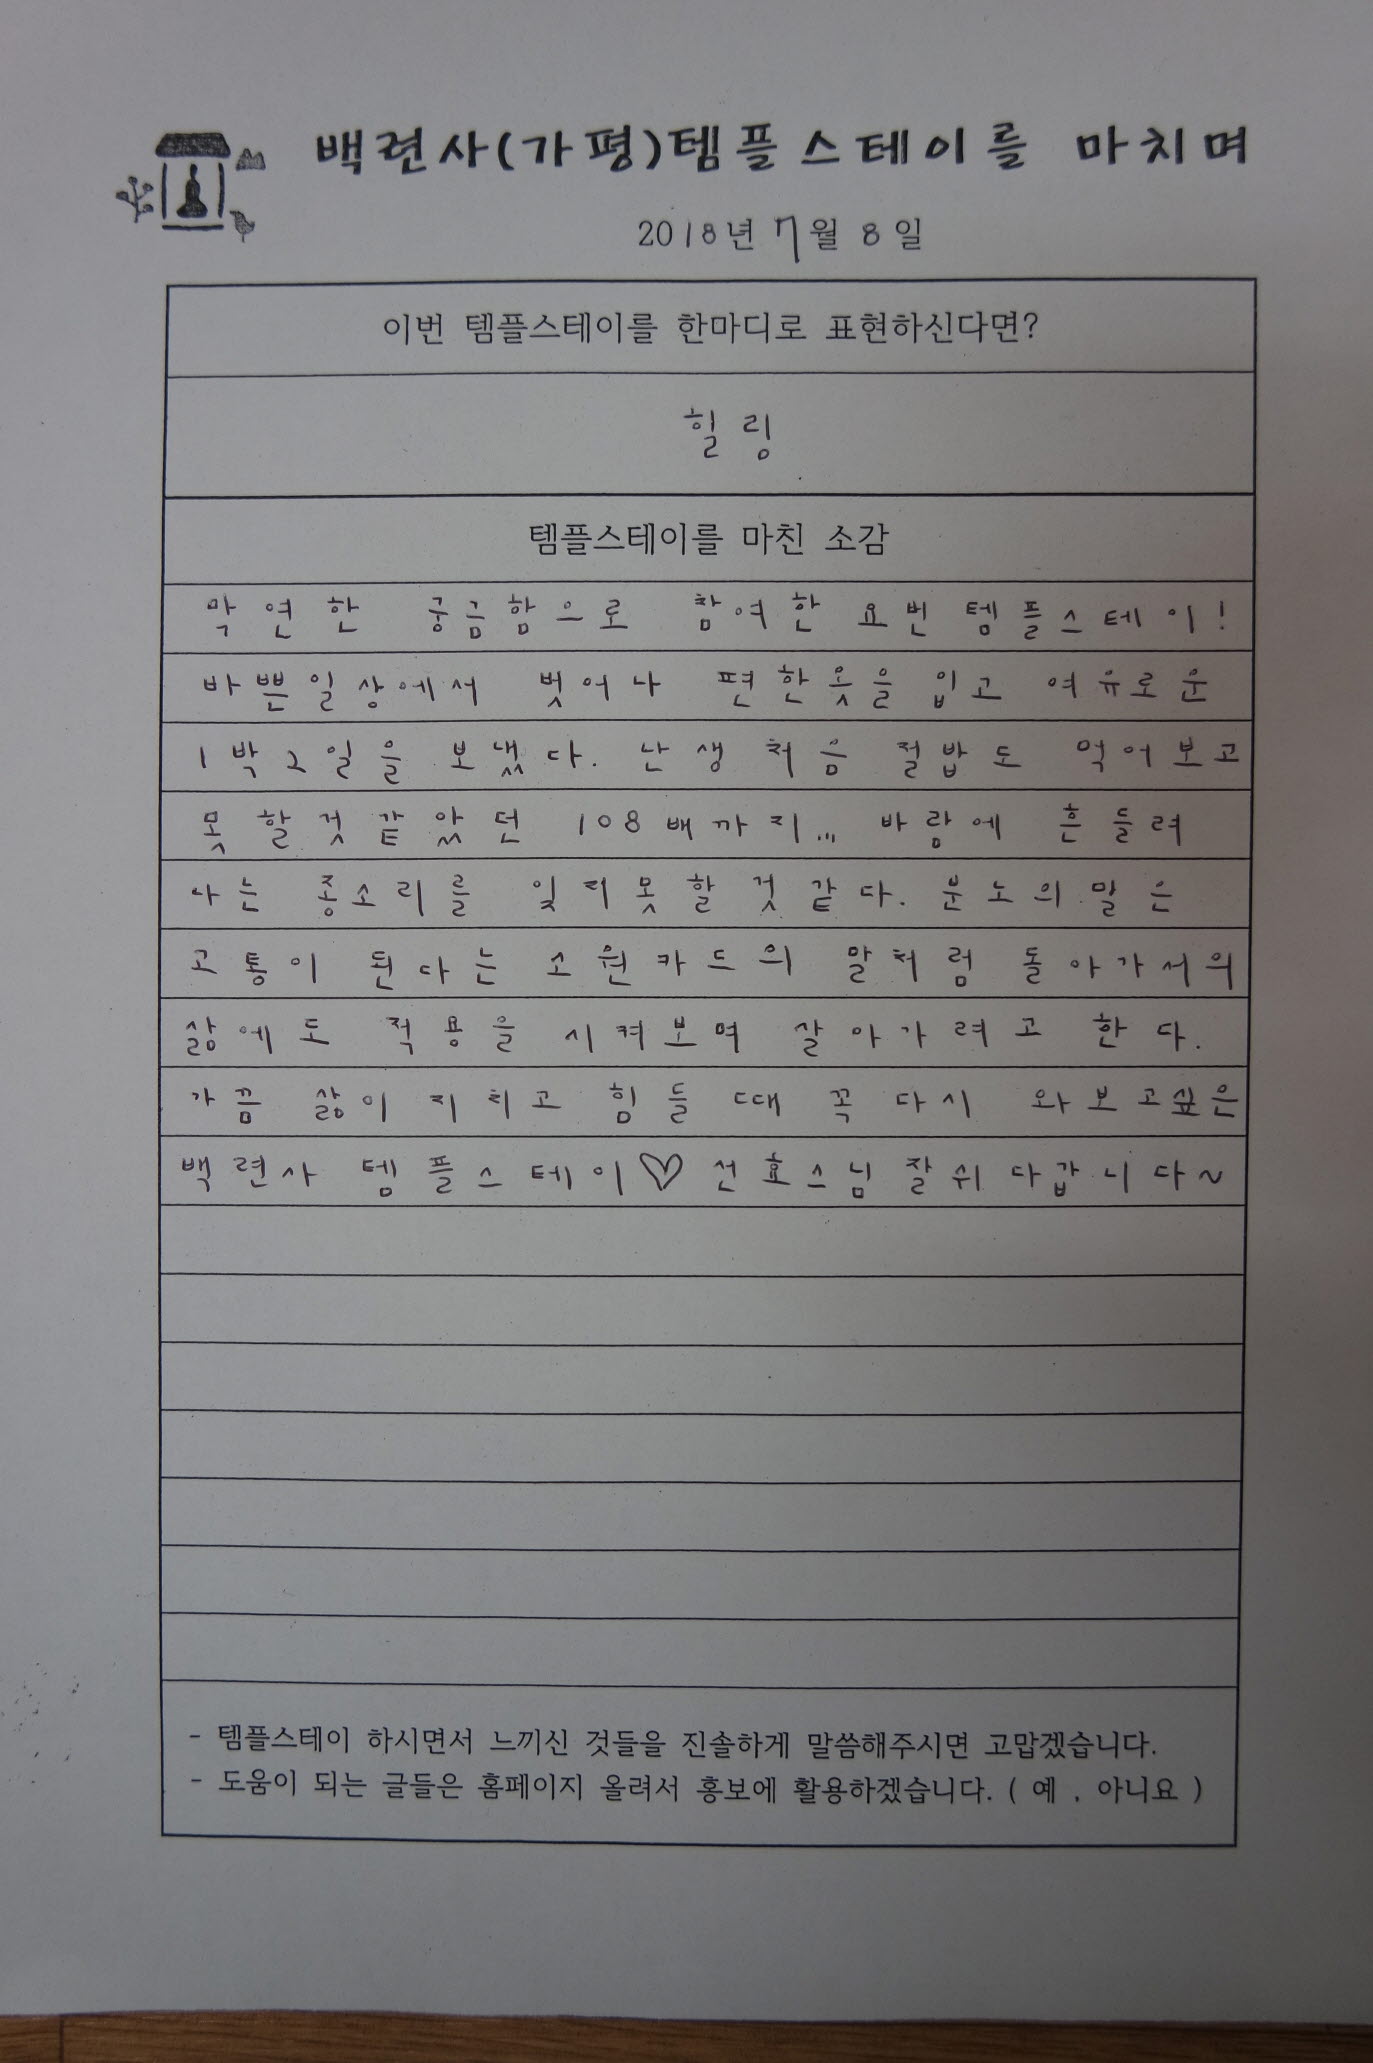 백련사(가평)템플스테이를 마치며
2018년 7월 8일
이번 템플스테이를 한마디로 표현하신다면?
힐링
템플스테이를 마친 소감
막연한 궁금함으로 참여한 요번 템플스테이!
바쁜일상에서 벗어나 편한옷을 입고 여유로운
1박2일을 보냈다. 난생처음 절밥도 먹어보고
못할것 같았던 108배까지... 바람에 흔들려
나는 종소리를 잊지못할것 같다. 분노의 말은
고통이 된다는 소원카드의 말처럼 돌아가서의
삶에도 적용을 시켜보며 살아가려고 한다.
가끔 삶이 지치고 힘들때 꼭 다시 와보고싶은
백련사 템플스테이♡ 선효스님 잘쉬다갑니다~
- 템플스테이 하시면서 느끼신 것들을 진솔하게 말씀해주시면 고맙겠습니다.
- 도움이 되는 글들은 홈페이지 올려서 홍보에 활용하겠습니다. ( 예 , 아니요 )